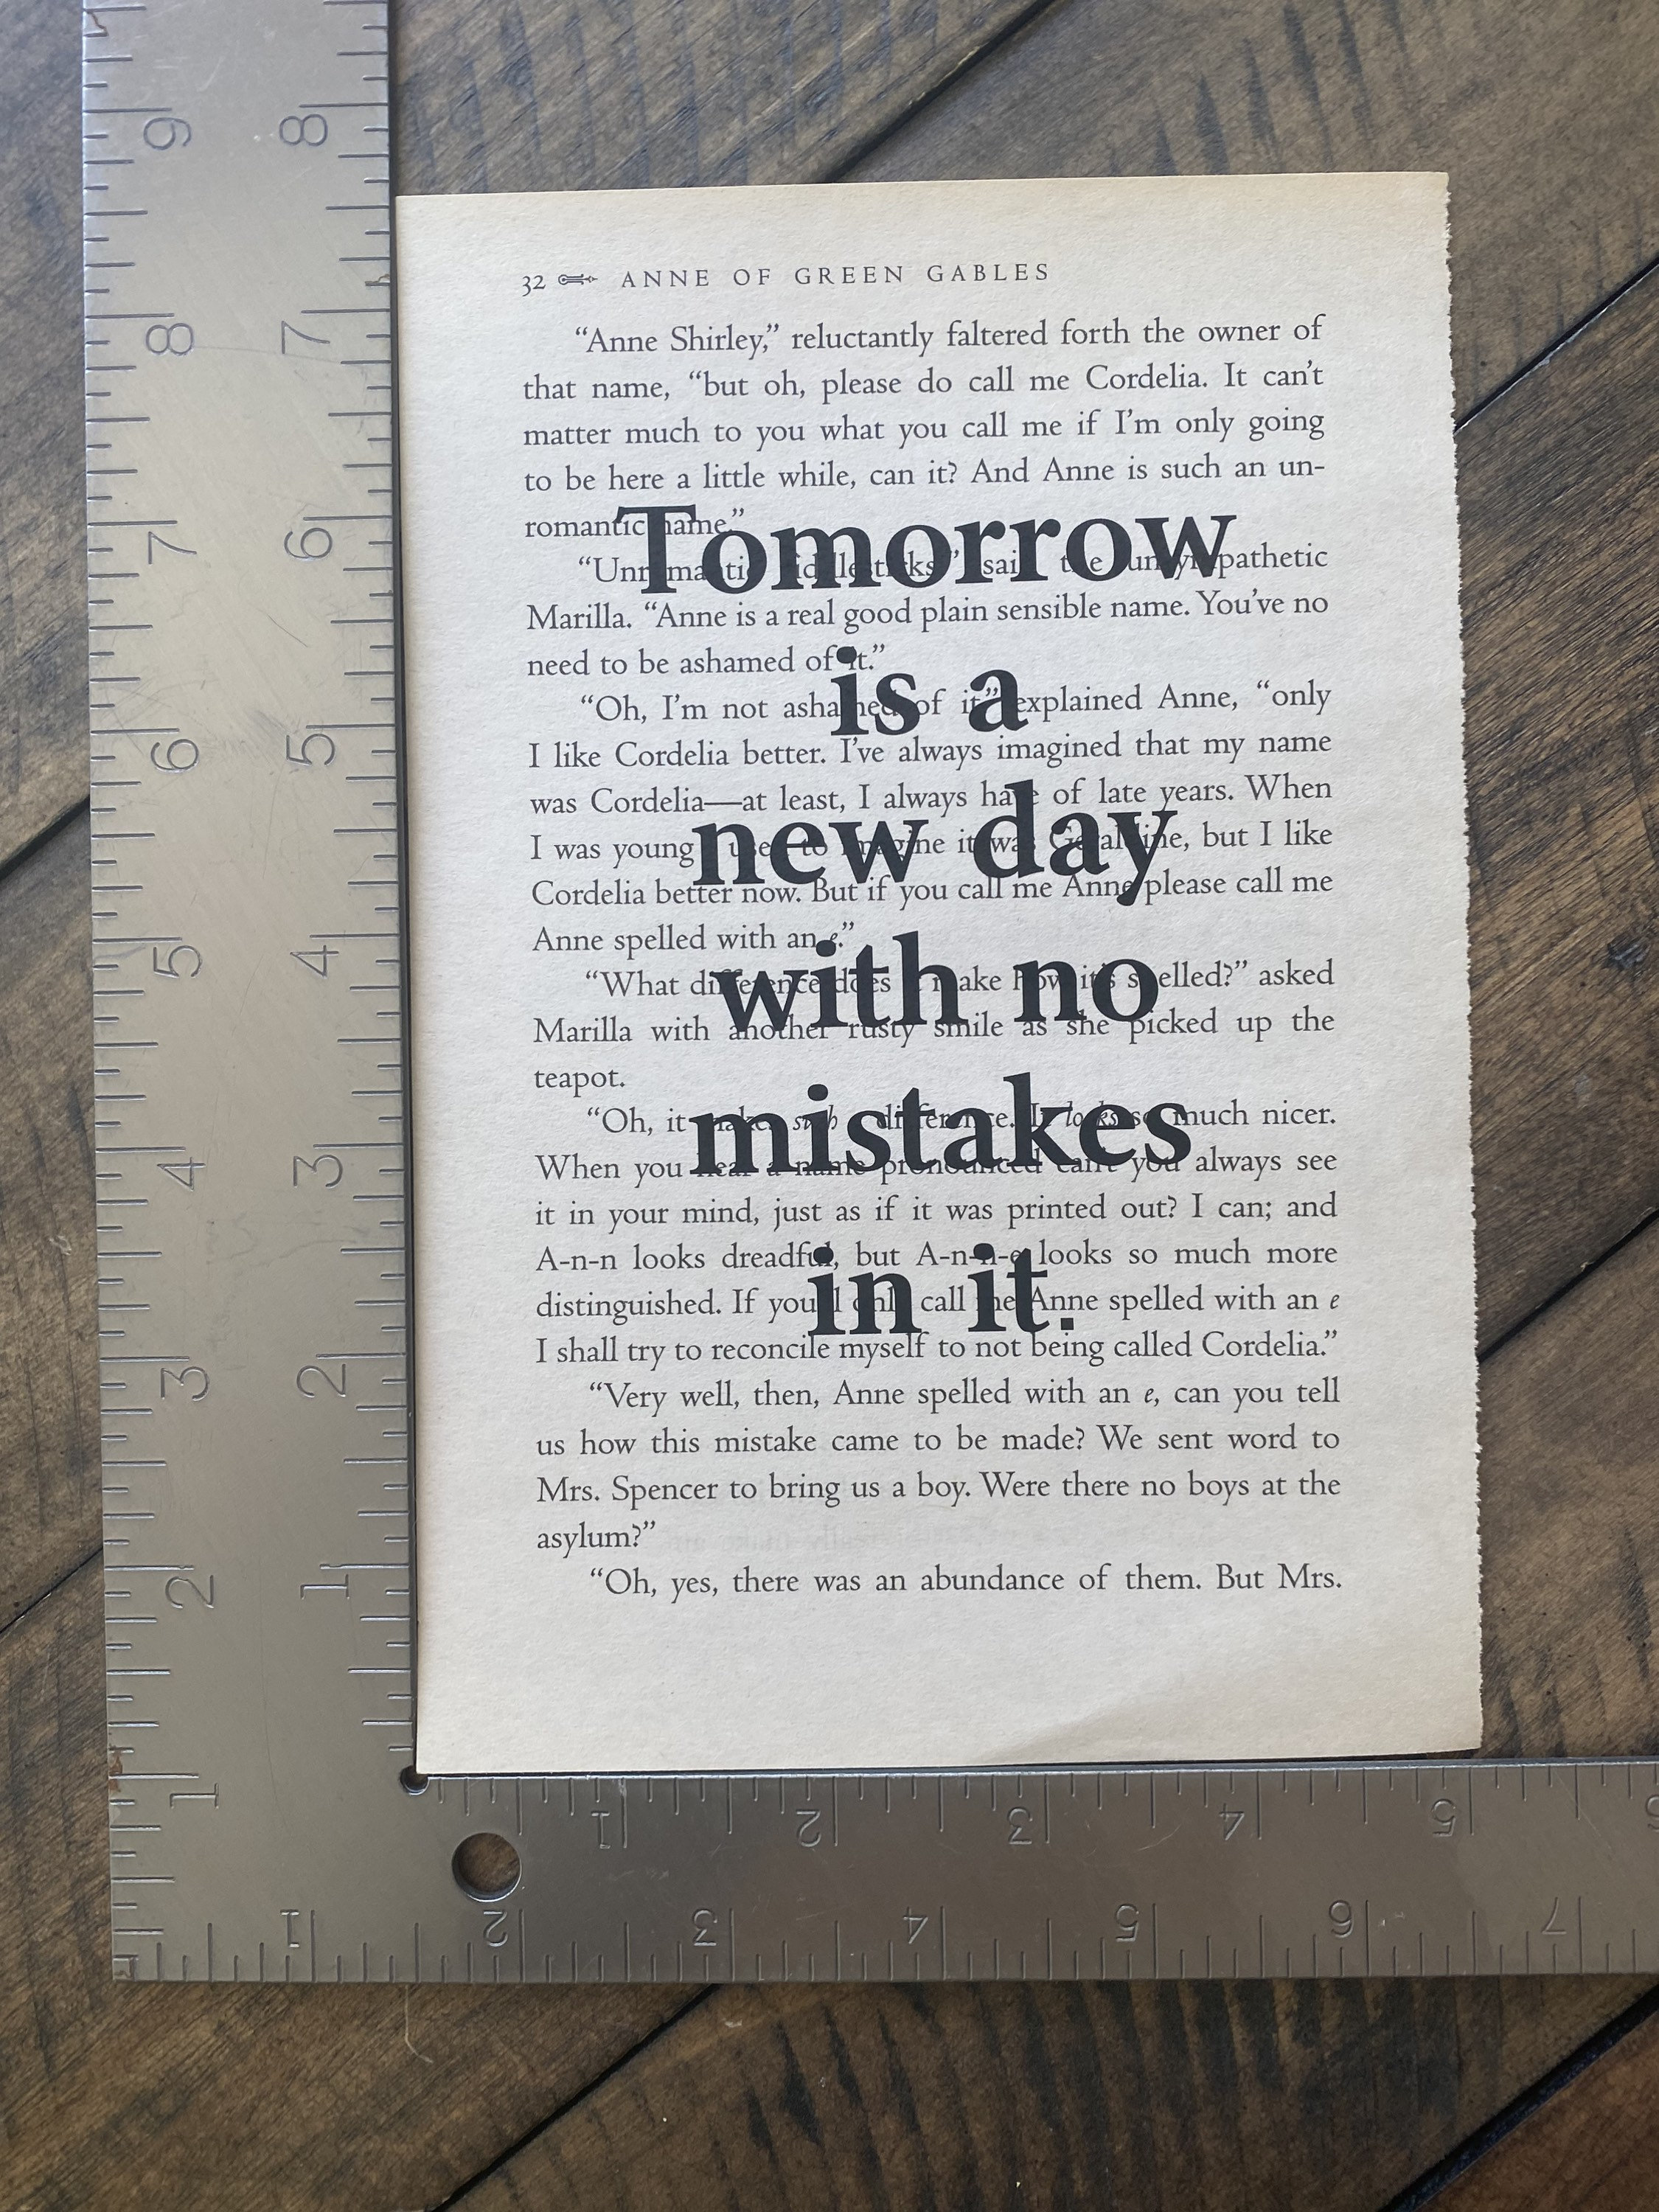 32 ANNE OF GREEN GABLES
“Anne Shirley,” reluctantly faltered forth the owner of
that name, “but oh, please do call me Cordelia. It can’t
matter much to you what you call me if I’m only going
to be here a little while, can it? And Anne is such an un-
romantic name.”
Tomorrow
“Unromantic fiddlesticks!” said the unsympathetic
Marilla. “Anne is a real good plain sensible name. You’ve no
need to be ashamed of it.”
is a
“Oh, I’m not ashamed of it,” explained Anne, “only
I like Cordelia better. I’ve always imagined that my name
was Cordelia—at least, I always have of late years. When
new day
I was young I used to imagine it was Geraldine, but I like
Cordelia better now. But if you call me Anne please call me
Anne spelled with an e.”
with no
“What difference does it make how it’s spelled?” asked
Marilla with another rusty smile as she picked up the
teapot.
mistakes
“Oh, it makes such a difference. It looks so much nicer.
When you hear a name pronounced can’t you always see
it in your mind, just as if it was printed out? I can; and
A-n-n looks dreadful, but A-n-n-e looks so much more
in it.
distinguished. If you’ll only call me Anne spelled with an e
I shall try to reconcile myself to not being called Cordelia.”
“Very well, then, Anne spelled with an e, can you tell
us how this mistake came to be made? We sent word to
Mrs. Spencer to bring us a boy. Were there no boys at the
asylum?”
“Oh, yes, there was an abundance of them. But Mrs.
9 8 7 6 5 4 3 2 1
8 7 6 5 4 3 2 1
1 2 3 4 5
1 2 3 4 5 6 7